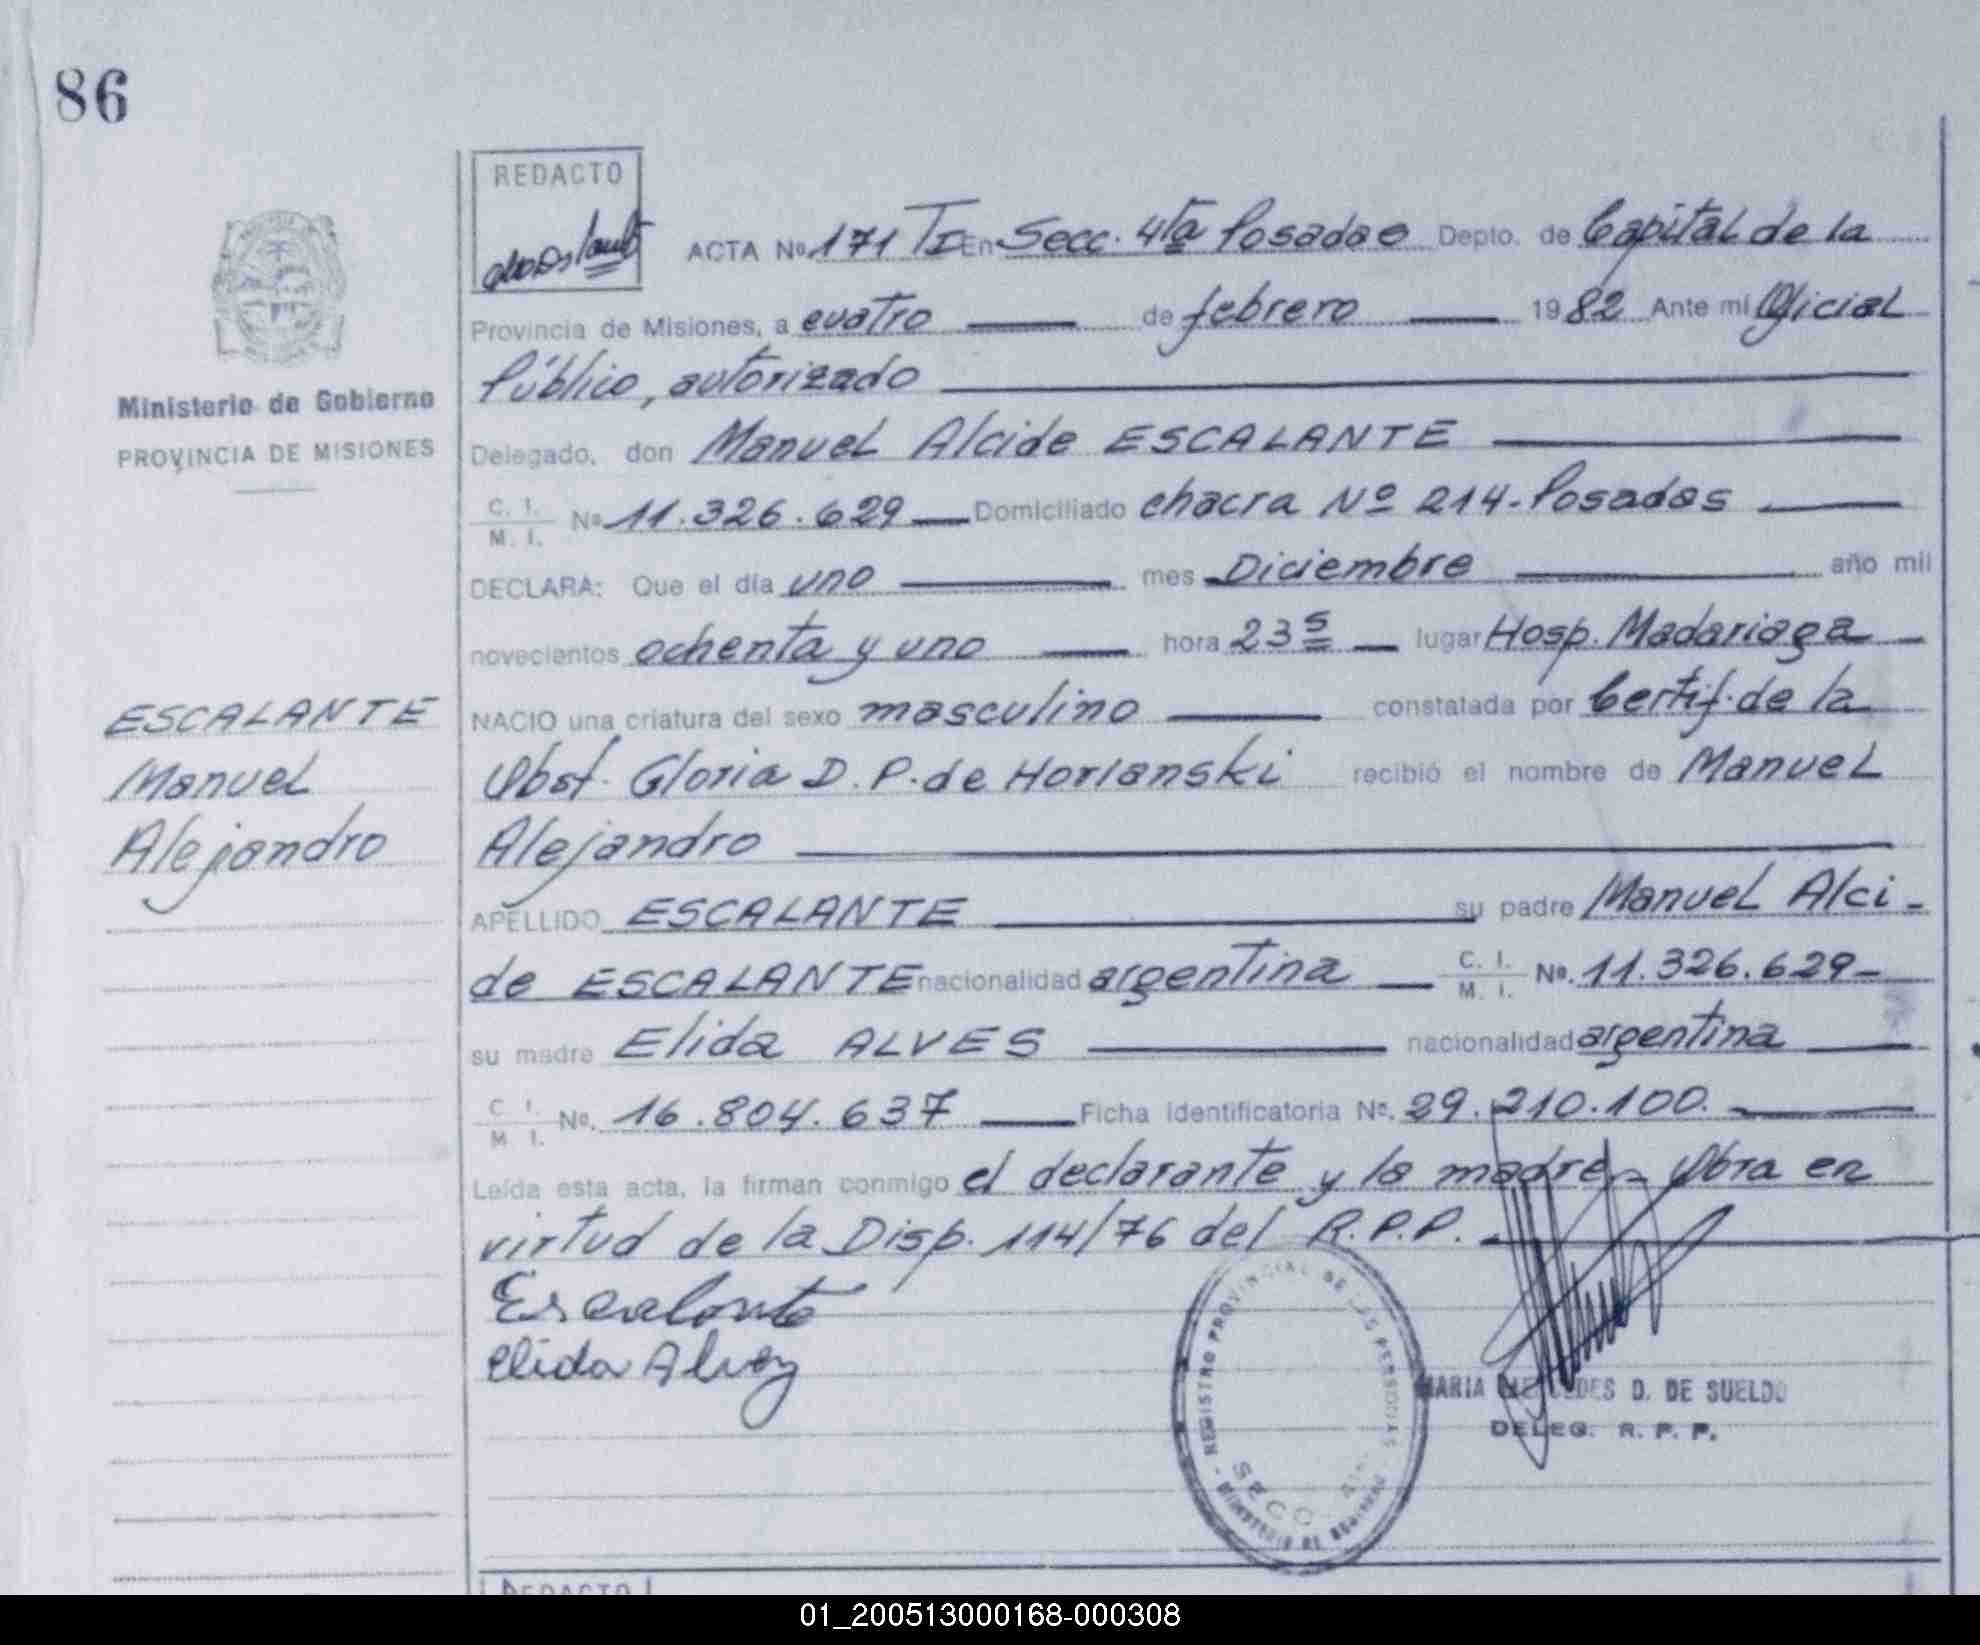 86
REDACTO
ACTA Nº 171 TI En Secc. 4ta Posadas Depto. de Capital de la
Provincia de Misiones, a cuatro de febrero 1982 Ante mí Oficial
Público, autorizado
Ministerio de Gobierno
PROVINCIA DE MISIONES
Delegado, don Manuel Alcide ESCALANTE
C. I. M. I. Nº 11.326.629 Domiciliado chacra Nº 214 - Posadas
DECLARA: Que el día uno mes Diciembre año mil
novecientos ochenta y uno hora 23 5 lugar Hosp. Madariaga
ESCALANTE
Manuel
Alejandro
NACIO una criatura del sexo masculino constatada por Certif. de la
Obst. Gloria D. P. de Horianski recibió el nombre de Manuel
Alejandro
APELLIDO ESCALANTE su padre Manuel Alci-
de ESCALANTE nacionalidad argentina C. I. M. I. Nº. 11.326.629-
su madre Elida ALVES nacionalidad argentina
C. I. M. I. Nº. 16.804.637 Ficha identificatoria Nº. 29.210.100.
Leída esta acta, la firman conmigo el declarante y la madre.- Obra en
virtud de la Disp. 114/76 del R.P.P.
Escalante
Elida Alvez
REGISTRO PROVINCIAL DE LAS PERSONAS
SECC. 4ta.
MINISTERIO DE GOBIERNO
MARIA MERCEDES D. DE SUELDO
DELEG. R. P. P.
REDACTO
01_200513000168-000308